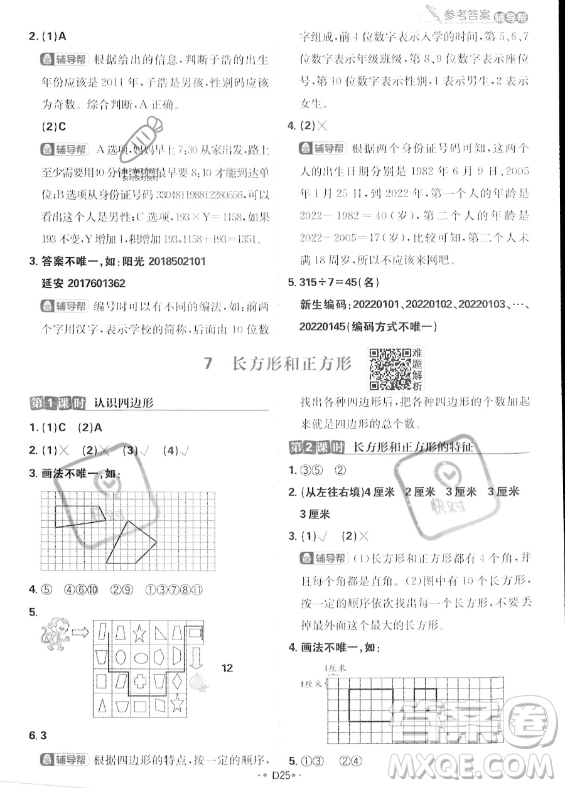 参考答案 辅导帮
2. (1)A
辅导帮 根据给出的信息，判断子浩的出生
年份应该是 2011 年，子浩是男孩，性别码应该
为奇数。综合判断，A 选项正确。
(2)C
辅导帮 A 选项，妈妈早上 7:30 从家出发，路上
至少需要 40 分钟，最早 8:10 才能到达单
位；B 选项从身份证号码 330481198812280556，可以
看出这个人是男性；C 选项，193×Y=1158，如果
193 不变，Y 增加 1，积增加 193。
3. 答案不唯一，如：阳光 2018502101
延安 2017601362
辅导帮 编号时可以有不同的编法，如前两
个字用汉字，表示学校的简称，前 4 位数
字组成，前 4 位数字表示入学的时间，第 5、6、7
位数字表示年级班级，第 8、9 位数字表示座位
号，最后 1 位数字表示性别，1 表示男生，2 表示
女生。
4. (2)×
辅导帮 根据两个身份证号码可知，这两个
人的出生日期分别是 1982 年 6 月 9 日、2005
年 1 月 25 日，到 2022 年，第一个人的年龄是
2022-1982=40（岁），第二个人的年龄是
2022-2005=17（岁），所以第二个人未
满 18 周岁，所以不能开车。
5. 315÷7=45(名)
新生编码：20220101、20220102、20220103、…、
20220145(编码方式不唯一)
7 长方形和正方形
难题解析
第1课时 认识四边形
1. (1)C (2)A
2. (1)× (2)× (3)√ (4)√
3. 画法不唯一，如：
4. ⑤ ④⑥⑩ ②⑨ ①⑦
5.
12
6. 3
辅导帮 根据四边形的特点，按一定的顺序，
找出各种四边形后，把各种四边形的个数加
起来就是四边形的总个数。
第2课时 长方形和正方形的特征
1. ③⑤ ②
2. (从左往右填)4 厘米 4 厘米 3 厘米
3 厘米
3. (1)√ (2)×
辅导帮 (1)长方形和正方形都有 4 个角，并
且每个角都是直角。(2)图中有 10 个长方形，
按一定的顺序依次找出长方形，注意不要丢
掉最外面这个最大的长方形。
4. 画法不唯一，如：
1厘米
1厘米
5. ①③ ②④
D25
快对
快对
答案圈
MXQE.COM